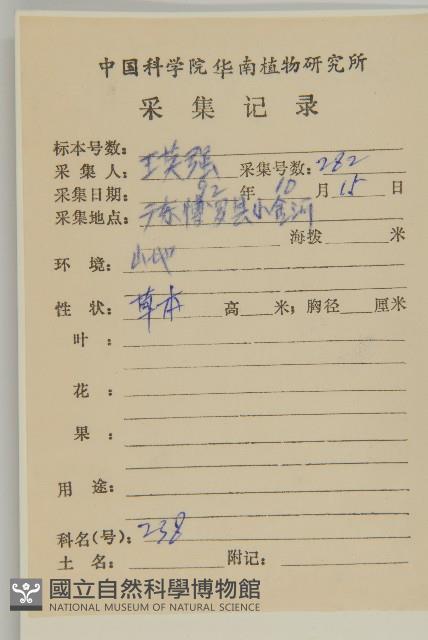 中国科学院华南植物研究所
采集记录
标本号数:
采集人: 王英强 采集号数: 282
采集日期: 92 年 10 月 15 日
采集地点: 广东博罗县小金河
海拨 米
环境: 山地
性状: 草本 高 米; 胸径 厘米
叶:
花:
果:
用途:
科名(号): 238
土名: 附记:
國立自然科學博物館
NATIONAL MUSEUM OF NATURAL SCIENCE